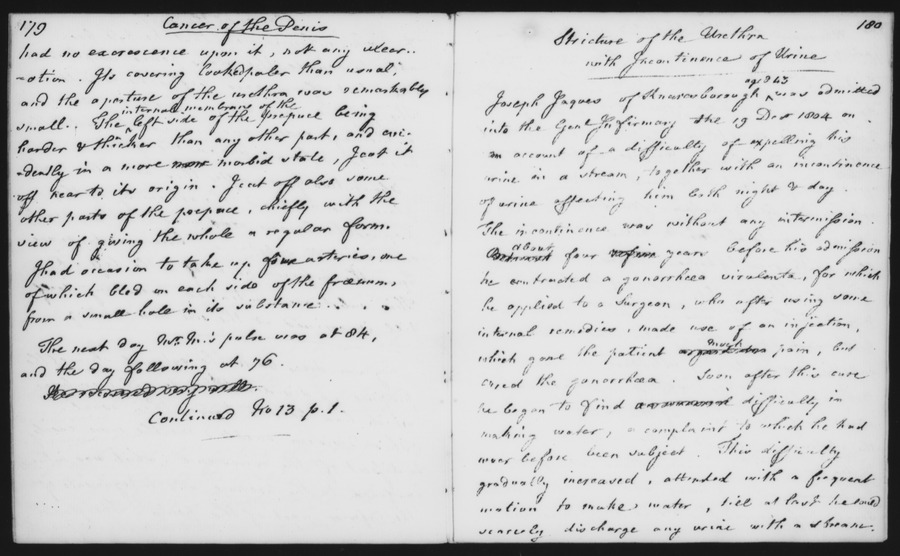 179
Cancer of the Penis
had no excrescence upon it, not any ulcer-
-ation. Its covering looked paler than usual,
and the aperture of the urethra was remarkably
small. The left side of the prepuce being
internal membrane of the
harder & thicker than any other part, and evi-
-dently in a more morbid state, I cut it
off near to its origin. I cut off also some
other parts of the prepuce, chiefly with the
view of giving the whole a regular form.
I had occasion to take up four arteries, one
of which bled on each side of the frænum,
from a small hole in its substance . . . .
The next day Mr. M.'s pulse was at 84,
and the day following at 76.
Continued No 13 p. 1.
180
Stricture of the Urethra
with Incontinence of Urine
aged 43
Joseph Jaques of Knaresborough was admitted
into the Genl Infirmary the 19 Decr 1804 on
account of a difficulty of expelling his
urine in a stream, together with an incontinence
of urine affecting him both night & day.
The incontinence was without any intermission.
about
four years before his admission
he contracted a gonorrhœa virulenta, for which
he applied to a Surgeon, who after using some
internal remedies, made use of an injection,
which gave the patient much pain, but
cured the gonorrhœa. Soon after this cure
he began to find difficulty in
making water, a complaint to which he had
never before been subject. This difficulty
gradually increased, attended with a frequent
motion to make water, till at last he could
scarcely discharge any urine with a stream.